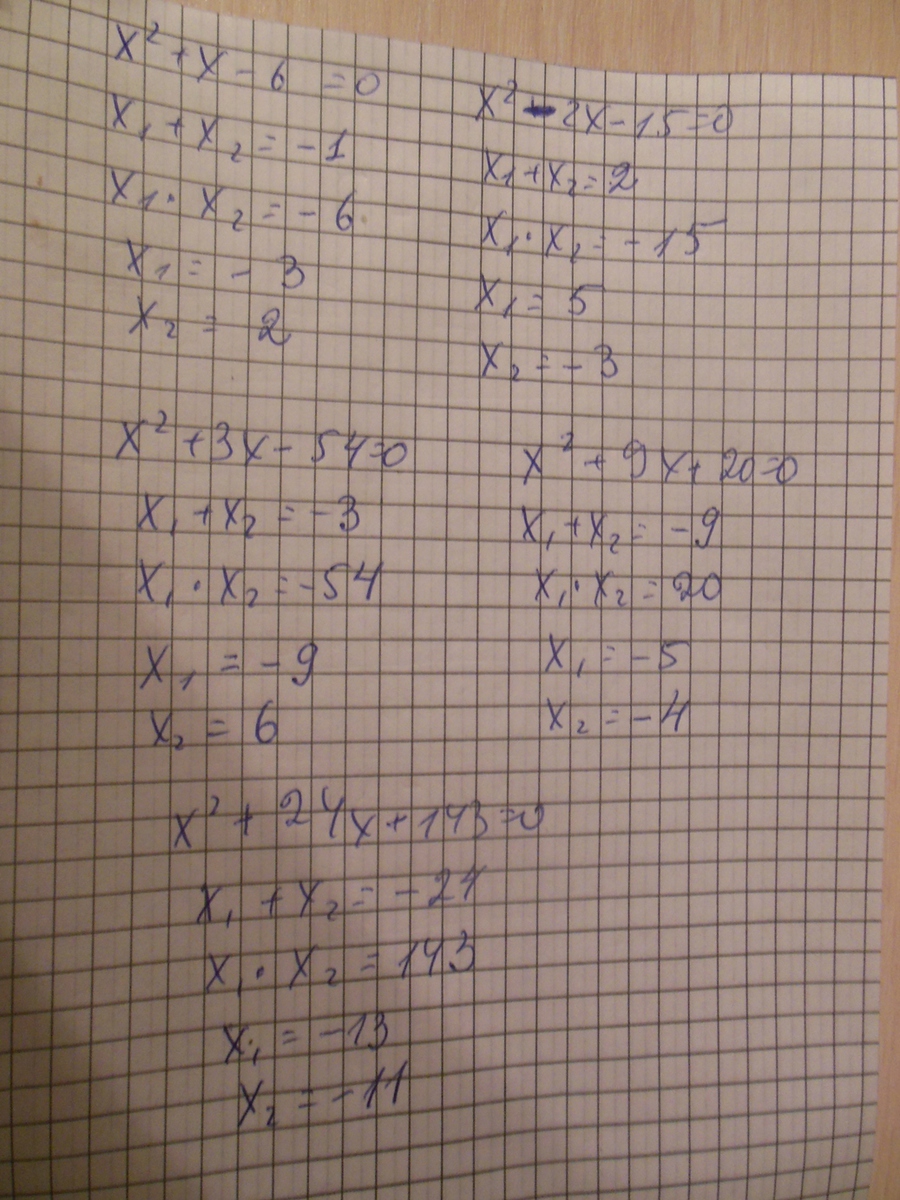 x² + x - 6 = 0
x₁ + x₂ = -1
x₁ · x₂ = -6
x₁ = -3
x₂ = 2
x² - 2x - 15 = 0
x₁ + x₂ = 2
x₁ · x₂ = -15
x₁ = 5
x₂ = -3
x² + 3x - 54 = 0
x₁ + x₂ = -3
x₁ · x₂ = -54
x₁ = -9
x₂ = 6
x² + 9x + 20 = 0
x₁ + x₂ = -9
x₁ · x₂ = 20
x₁ = -5
x₂ = -4
x² + 24x + 143 = 0
x₁ + x₂ = -24
x₁ · x₂ = 143
x₁ = -13
x₂ = -11